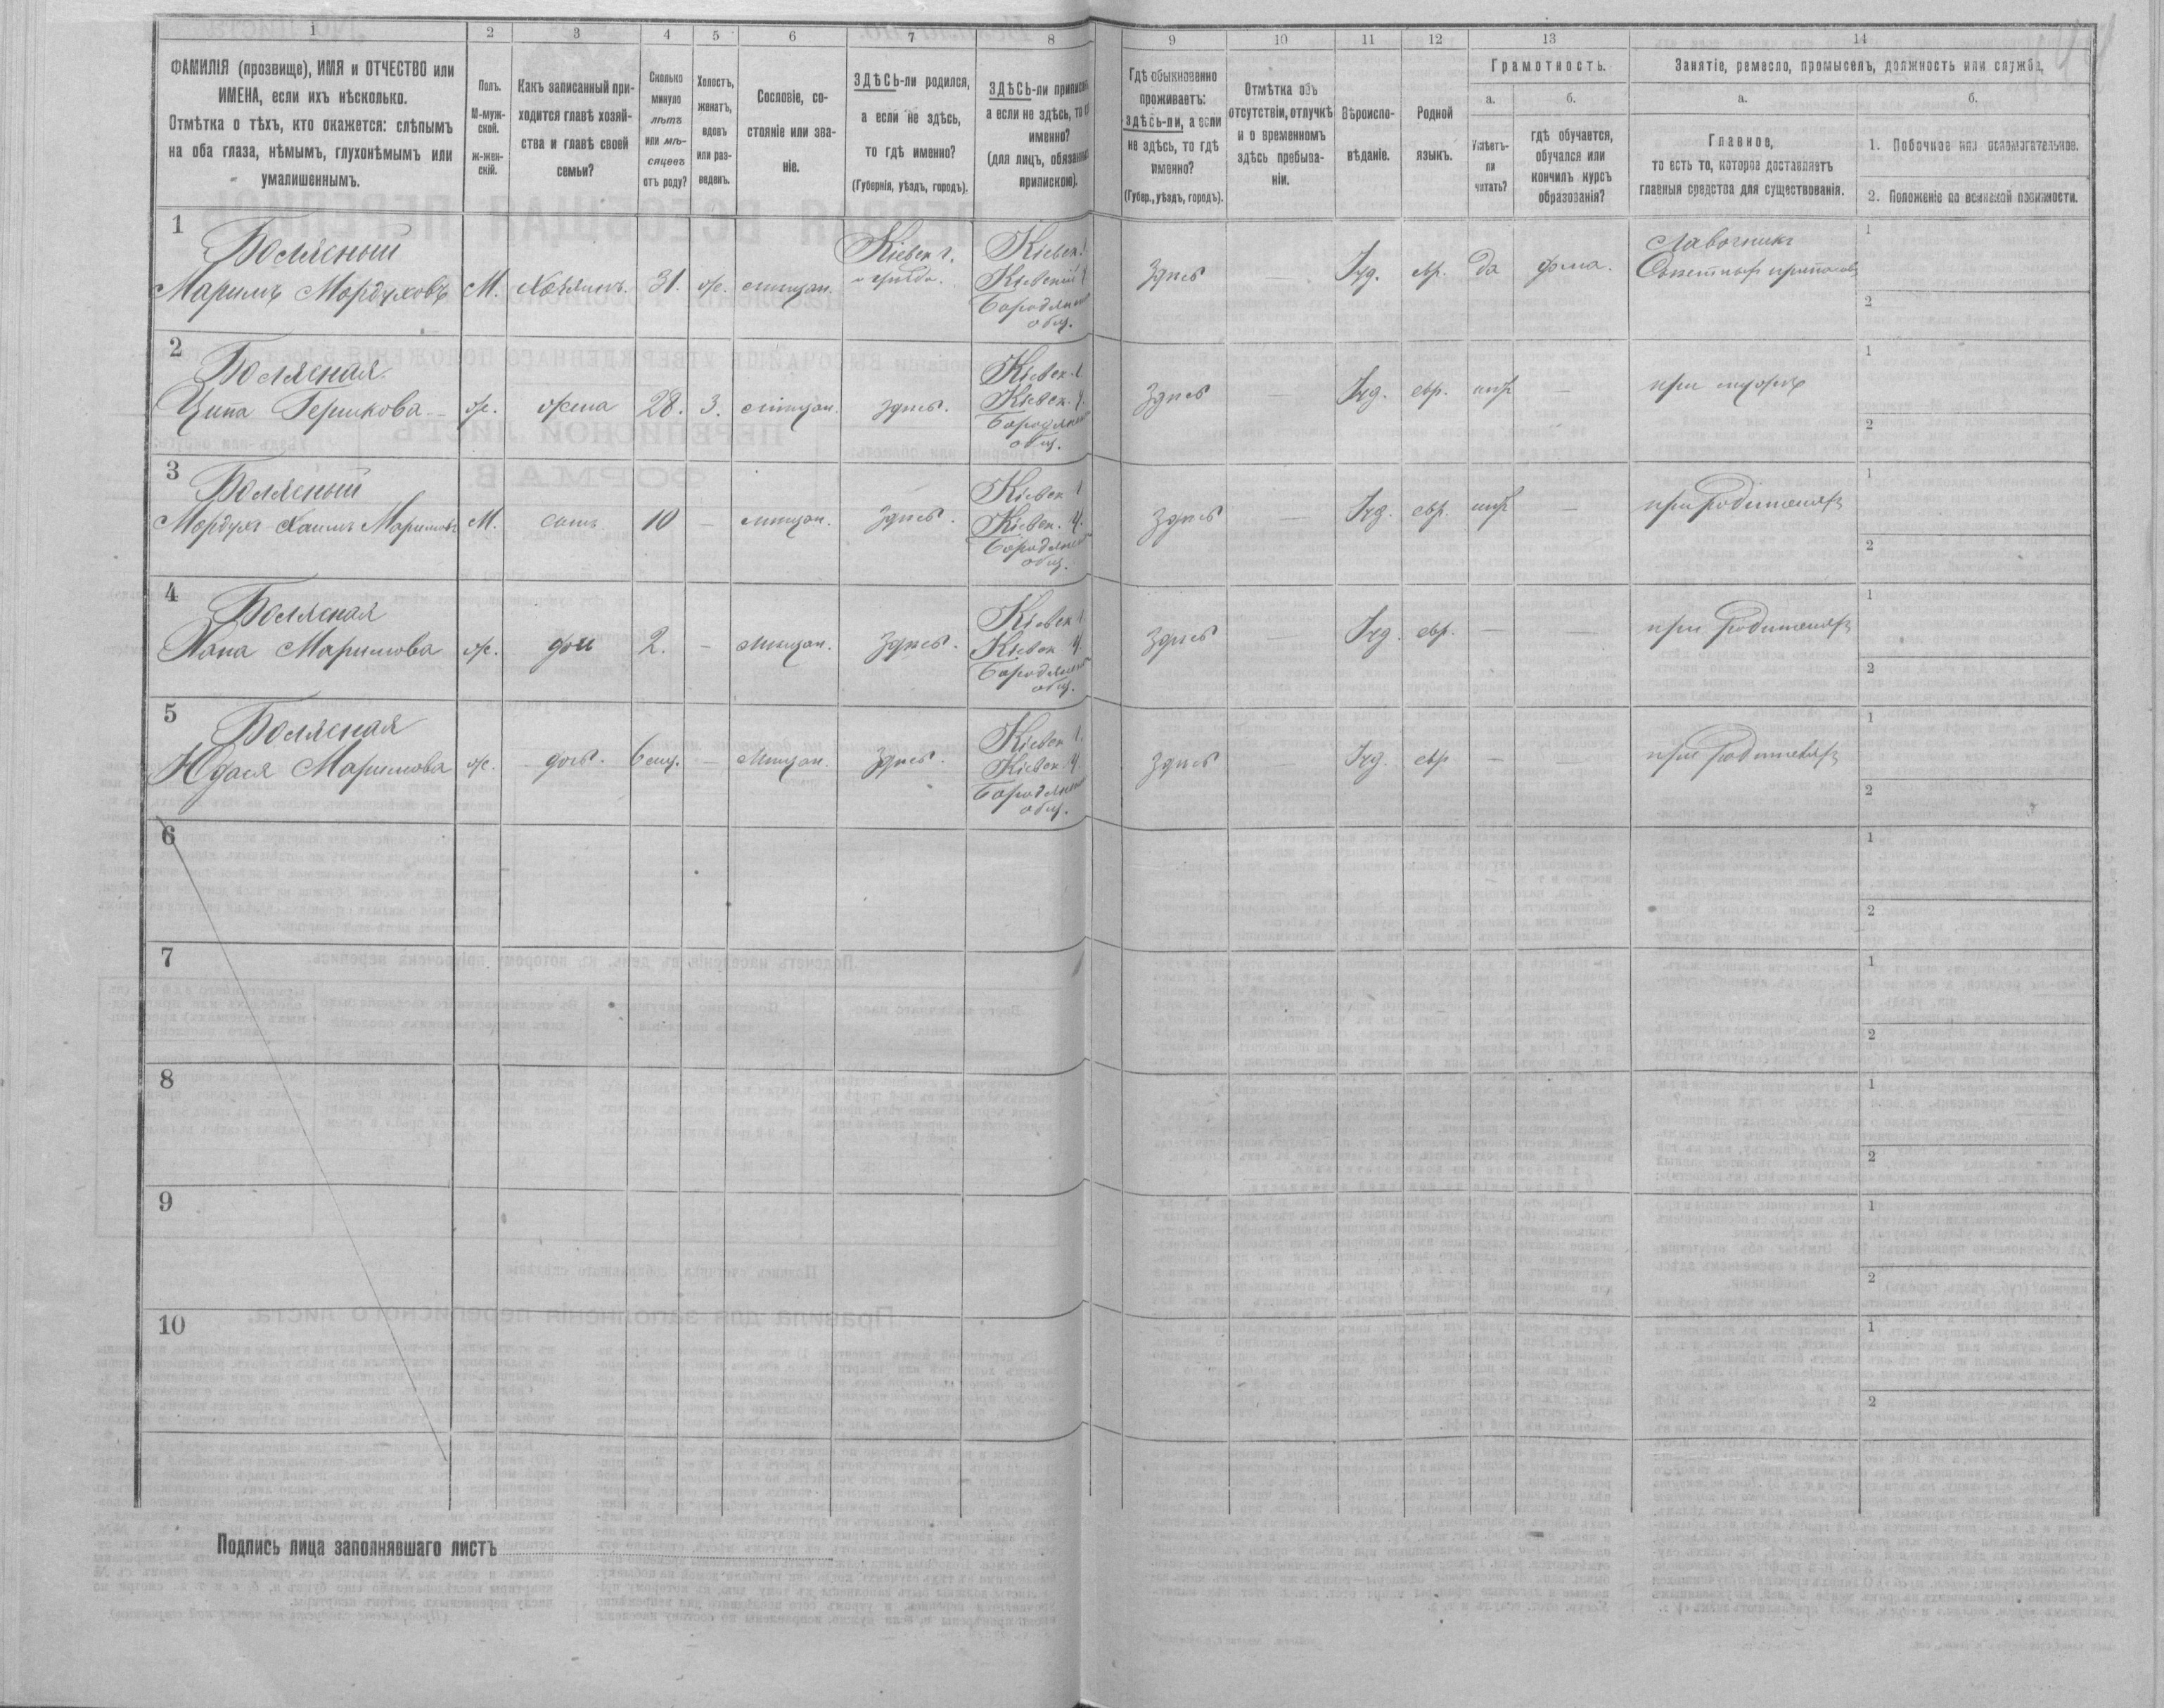 1 2 3 4 5 6 7 8 9 10 11 12 13 14
ФАМИЛІЯ (прозвище), ИМЯ и ОТЧЕСТВО или
ИМЕНА, если ихъ нѣсколько.
Отмѣтка о тѣхъ, кто окажется: слѣпымъ
на оба глаза, нѣмымъ, глухонѣмымъ или
умалишеннымъ.
Полъ.
М-муж-
ской.
ж-жен-
скій.
Какъ записанный при-
ходится главѣ хозяй-
ства и главѣ своей
семьи?
Сколько
минуло
лѣтъ
или мѣ-
сяцевъ
отъ роду?
Холостъ,
женатъ,
вдовъ
или раз-
веденъ.
Сословіе, со-
стояніе или зва-
ніе.
ЗДѢСЬ-ли родился,
а если не здѣсь,
то гдѣ именно?
(Губернія, уѣздъ, городъ).
ЗДѢСЬ-ли приписан
а если не здѣсь, то
именно?
(для лицъ, обязанны
припискою).
Гдѣ обыкновенно
проживаетъ:
здѣсь-ли, а если
не здѣсь, то гдѣ
именно?
(Губер., уѣздъ, городъ).
Отмѣтка объ
отсутствіи, отлучкѣ
и о временномъ
здѣсь пребыва-
ніи.
Вѣроиспо-
вѣданіе.
Родной
языкъ.
Грамотность.
а.
Умѣетъ-
ли
читать?
б.
гдѣ обучается,
обучался или
кончилъ курсъ
образованія?
Занятіе, ремесло, промыселъ, должность или служба.
а.
Главное,
то есть то, которое доставляетъ
главныя средства для существованія.
б.
1. Побочное или вспомогательное.
2. Положеніе по воинской повинности.
1
Болясный
Маримъ Мордуховъ М. Хозяинъ. 31. ж. мѣщан.
Кіевск г.
Кіевск.
Кіевскій
Бородянск
общ.
Здѣсь — Іуд. евр. да дома.
Лавочникъ
1
2
2
Болясная
Ципа Гершкова ж. жена 28. З. мѣщан. здѣсь.
Кіевск.
Кіевск. у.
Бородянск
общ.
Здѣсь Іуд. евр. нѣтъ — при мужѣ
1
2
3
Болясный
Мордух-Хаимъ Маримовъ М. сынъ. 10 — мѣщан. здѣсь.
Кіевск
Кіевск. у.
Бородянск
общ.
Здѣсь — Іуд. евр. нѣтъ — при родителяхъ
1
2
4
Болясная
Хана Маримова ж. дочь 2. — мѣщан. здѣсь.
Кіевск
Кіевск у.
Бородянск
общ.
Здѣсь Іуд. евр. — — при родителяхъ
1
2
5
Болясная
Маримова ж. дочь. 6 мц. — мѣщан. здѣсь.
Кіевск
Кіевск у.
Бородянск
общ.
Здѣсь — Іуд. евр — — при родителяхъ
1
2
6
1
2
7
1
2
8
1
2
9
1
2
10
1
2
Подпись лица заполнявшаго листъ